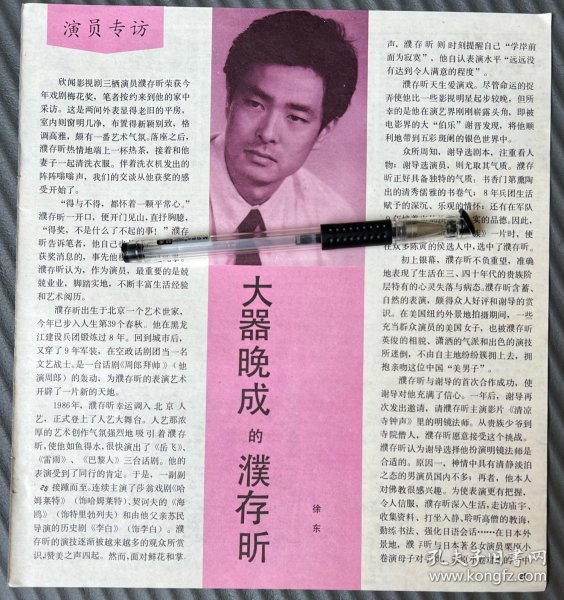 演员专访
欣闻影视剧三栖演员濮存昕荣获今
年戏剧梅花奖，笔者按约来到他的家中
采访。这是两间外表显得老旧的平房，
室内则窗明几净，布置得新颖别致，格
调高雅，颇有一番艺术气氛。落座之后，
濮存昕热情地端上一杯热茶，接着和他
妻子一起清洗衣服。伴着洗衣机发出的
阵阵嗡嗡声，我们的交谈从他获奖的感
受开始了。
“得与不得，都怀着一颗平常心。”
濮存昕一开口，便开门见山，直抒胸臆，
“得奖，不是什么了不起的事！”濮存
昕告诉笔者，他自己也
获奖消息的，事先他
濮存昕认为，作为演员，最重要的是兢
兢业业，脚踏实地，不断丰富生活经验
和艺术阅历。
濮存昕出生于北京一个艺术世家，
今年已步入人生第39个春秋。他在黑龙
江建设兵团锻炼过8年。回到城市后，
又穿了9年军装，在空政话剧团当一名
文艺战士。是一台话剧《周郎拜帅》（他
演周郎）的轰动，为濮存昕的表演艺术
开辟了一片新的天地。
1986年，濮存昕幸运调入北京人
艺，正式登上了人艺大舞台。人艺那浓
厚的艺术创作气氛强烈地吸引着濮存
昕，使他如鱼得水，很快演出了《岳飞》、
《雷雨》、《巴黎人》三台话剧。他的
表演受到了同行的肯定。于是，一副副
接踵而至。连续主演了莎翁戏剧《哈
姆莱特》（饰哈姆莱特）、契诃夫的《海
鸥》（饰特里勃列夫）和由他父亲苏民
导演的历史剧《李白》（饰李白）。濮
存昕的演技逐渐被越来越多的观众所赏
识，赞美之声四起。然而，面对鲜花和掌
大器晚成的濮存昕
徐东
声，濮存昕则时刻提醒自己“学岸前
面为寂寞”，他自认表演水平“远远没
有达到令人满意的程度”。
濮存昕天生爱演戏。尽管命运的捉
弄使他比一些影视明星起步较晚，但所
幸的是他在演艺界刚刚崭露头角，即被
电影界的大“伯乐”谢晋发现，将他顺
利地带到五彩斑阑的银色世界中。
众所周知，谢导选剧本，注重看人
物；谢导选演员，则尤取其气质。濮存
昕正好具备独特的气质：书香门第熏陶
出的清秀儒雅的书卷气；8年兵团生活
赋予的深沉、乐观的情怀；还有在军队
实的品德。因此，
》一片时，便
在众多陈寅的候选人中，选中了濮存昕。
初上银幕，濮存昕不负重望，准确
地表现了生活在三、四十年代的贵族阶
层特有的心灵失落与病态。濮存昕含蓄、
自然的表演，颇得众人好评和谢导的赏
识。在美国纽约外景地拍摄期间，一些
充当群众演员的美国女子，也被濮存昕
英俊的相貌、潇洒的气派和出色的演技
所迷倒，不由自主地纷纷簇拥上去，拥
抱亲吻这位中国“美男子”。
濮存昕与谢导的首次合作成功，使
谢导对他充满了信心。一年后，谢导再
次发出邀请，请濮存昕主演影片《清凉
寺钟声》里的明镜法师。从贵族少爷到
寺院僧人，濮存昕愿意接受这个挑战。
濮存昕认为谢导选择他扮演明镜法师是
合适的。原因一，神情中具有清静淡泊
之态的男演员国内不多；再者，他本人
对佛教很感兴趣。为使表演更有把握，
令人信服，濮存昕深入生活，走访庙宇、
收集资料、打坐入静、聆听高僧的教诲，
勤练书法、强化日语会话……在日本外
景地，濮存昕与日本著名女演员栗原小
卷演母子对
孔夫子旧书网
www.kongfz.com